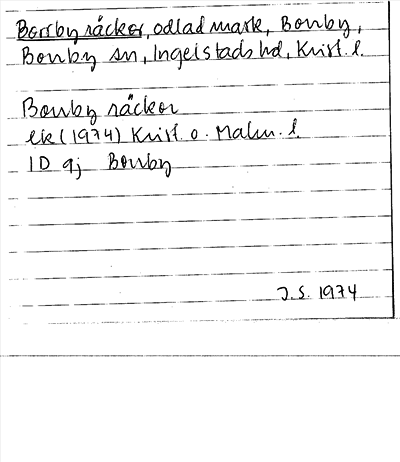 Borrby räcker, odlad mark, Borrby,
Borrby sn, Ingelstads hd, Krist. l.
Borrby räcker
ek (1974) Krist. o. Malm. l.
1D 9j Borrby
J.S. 1974